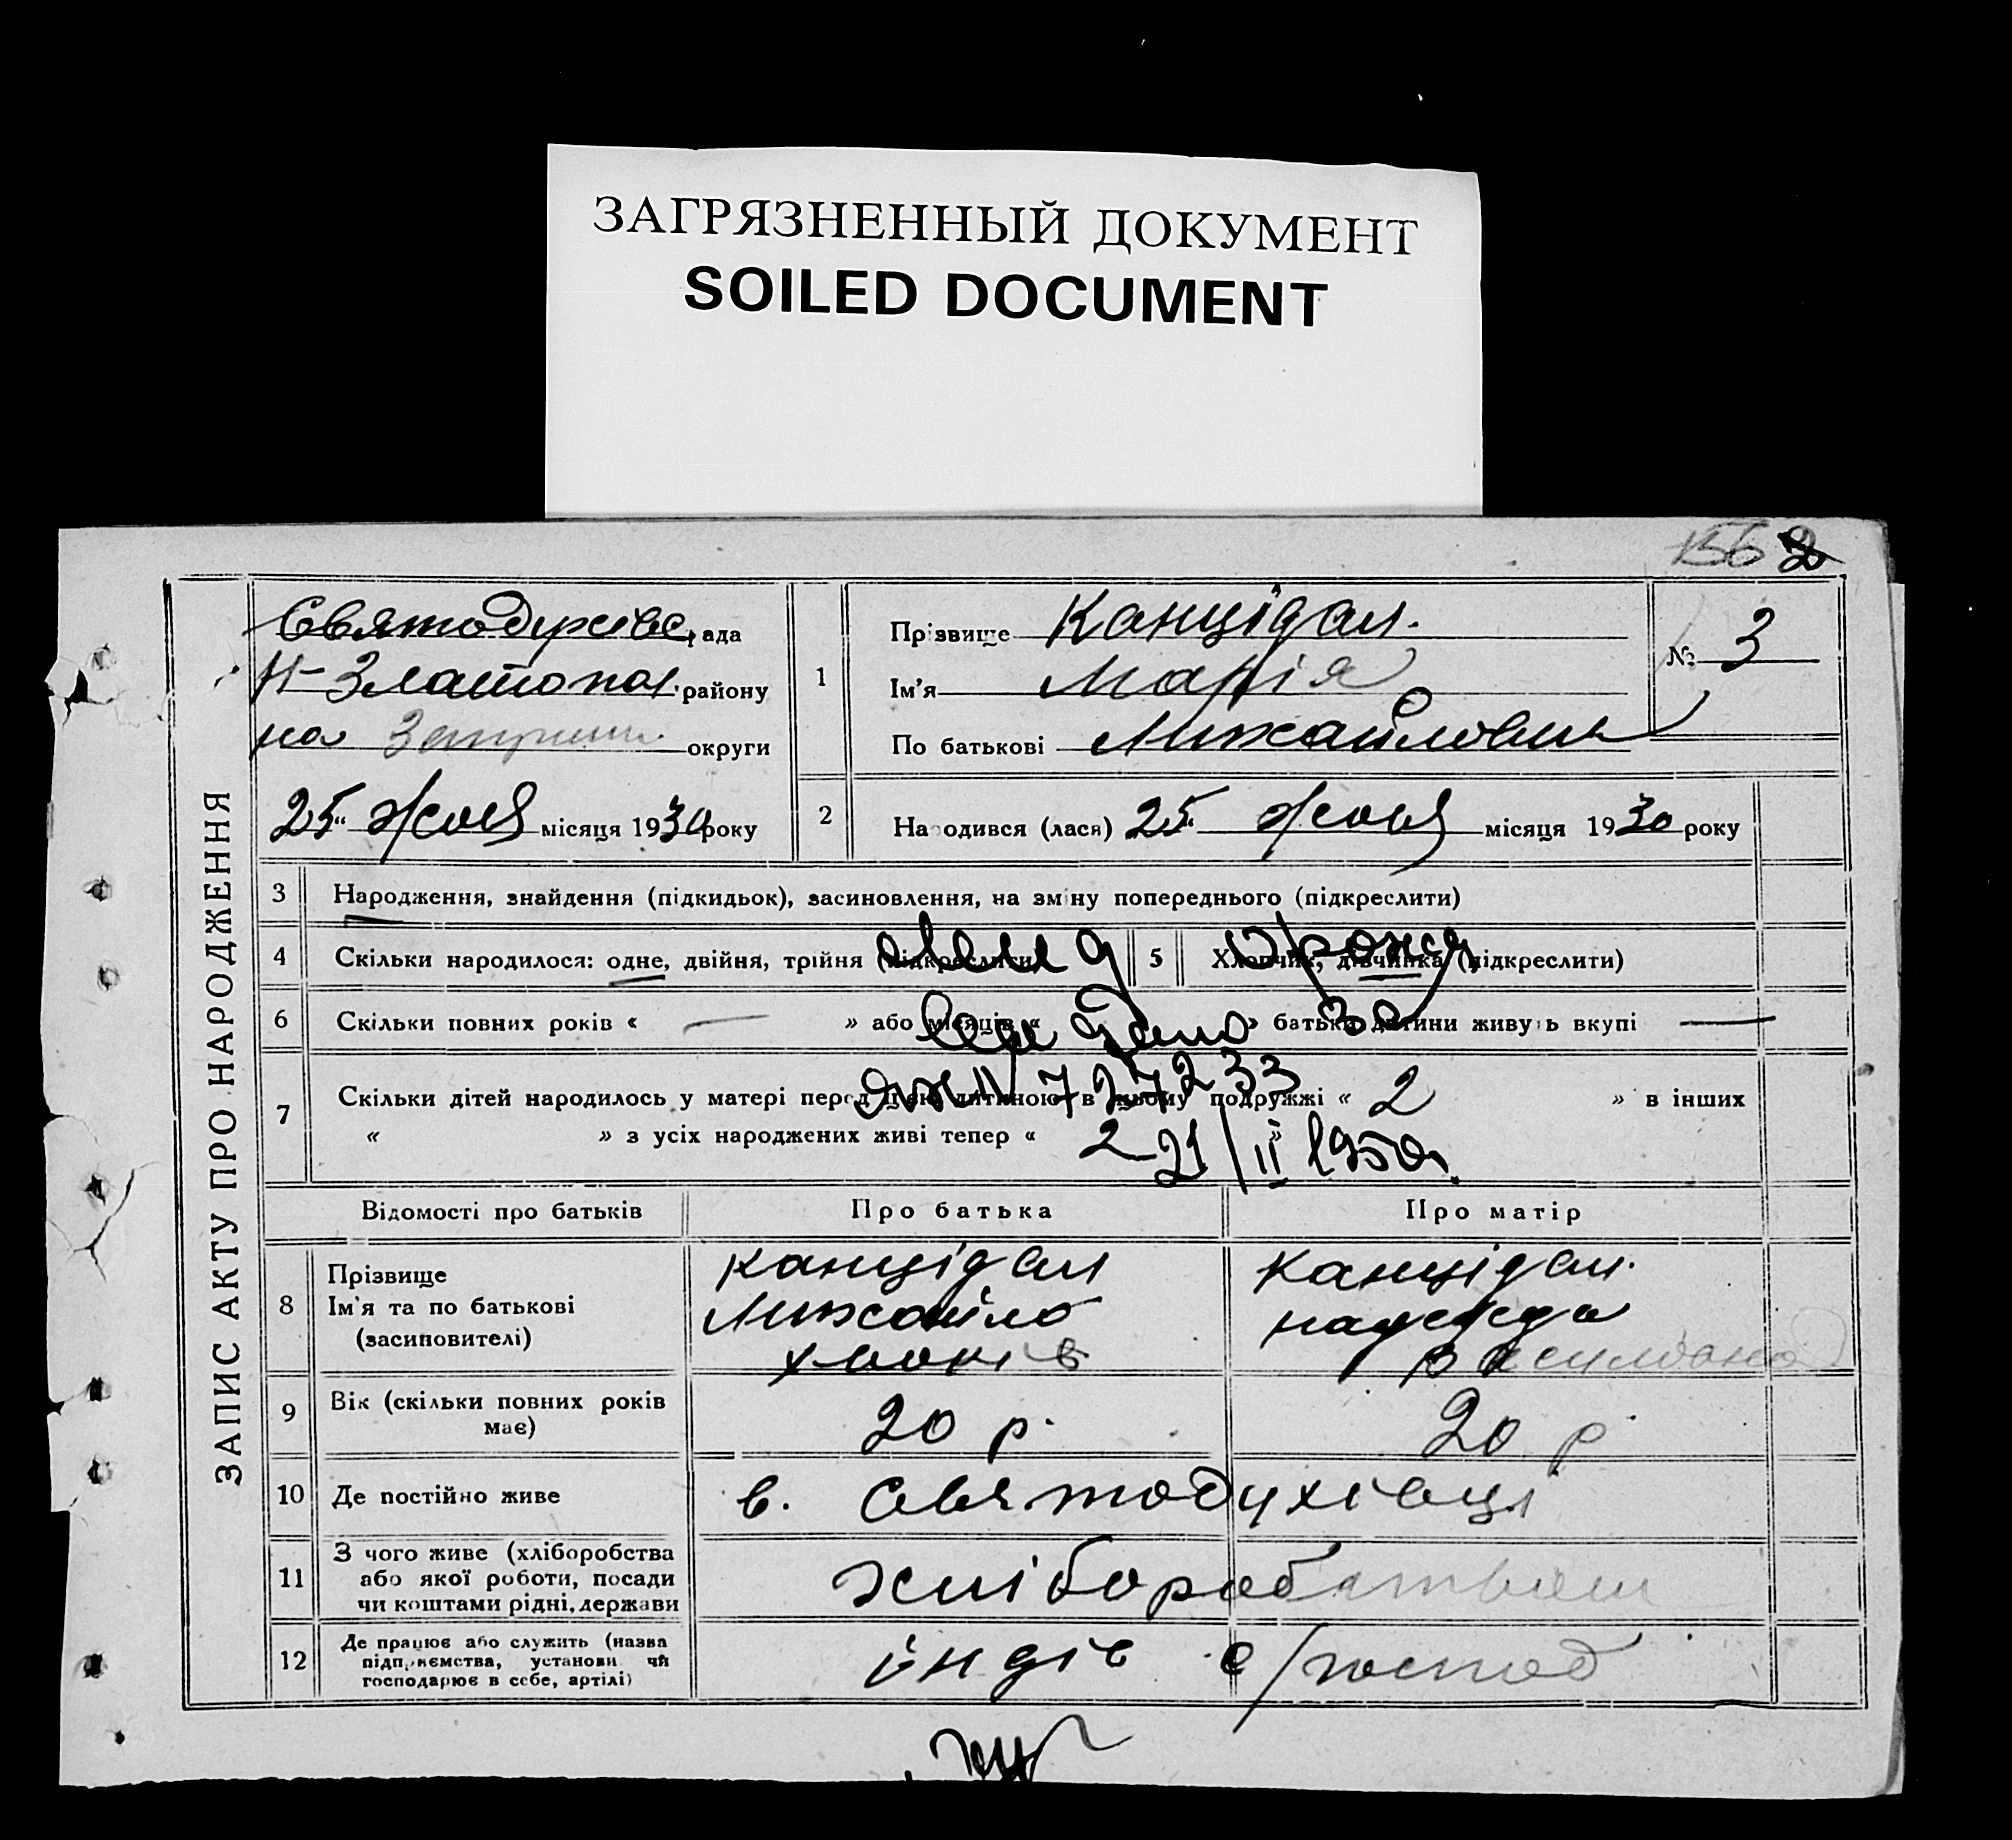 ЗАГРЯЗНЕННЫЙ ДОКУМЕНТ
SOILED DOCUMENT
ЗАПИС АКТУ ПРО НАРОДЖЕННЯ
Святодухівс рада
Н-Златопол. району
на округи
25 " місяця 1930 року
1
Прізвище Канцідал.
Ім'я Марія
По батькові
№ 3
2
Народився (лася) 25 " місяця 1930 року
3 Народження, знайдення (підкидьок), засиновлення, на зміну попереднього (підкреслити)
4 Скільки народилося: одне, двійня, трійня (підкреслити)
5 Хлопчик, дівчинка (підкреслити)
6 Скільки повних років « — » або місяців « » батьки дитини живуть вкупі —
7 Скільки дітей народилось у матері перед цією дитиною в цьому подружжі « 2 » в інших
« » з усіх народжених живі тепер « 2 »
727233
21/II 1950г.
Відомості про батьків Про батька Про матір
8 Прізвище
Ім'я та по батькові
(засиновителі)
Канцідал
Михайло
Канцідал.
9 Вік (скільки повних років
має)
20 р.
20 р.
10 Де постійно живе
в. Святодухівці
11 З чого живе (хліборобства
або якої роботи, посади
чи коштами рідні, держави
хліборобством
12 Де працює або служить (назва
підприємства, установи чи
господарює в себе, артілі)
індів с/господ